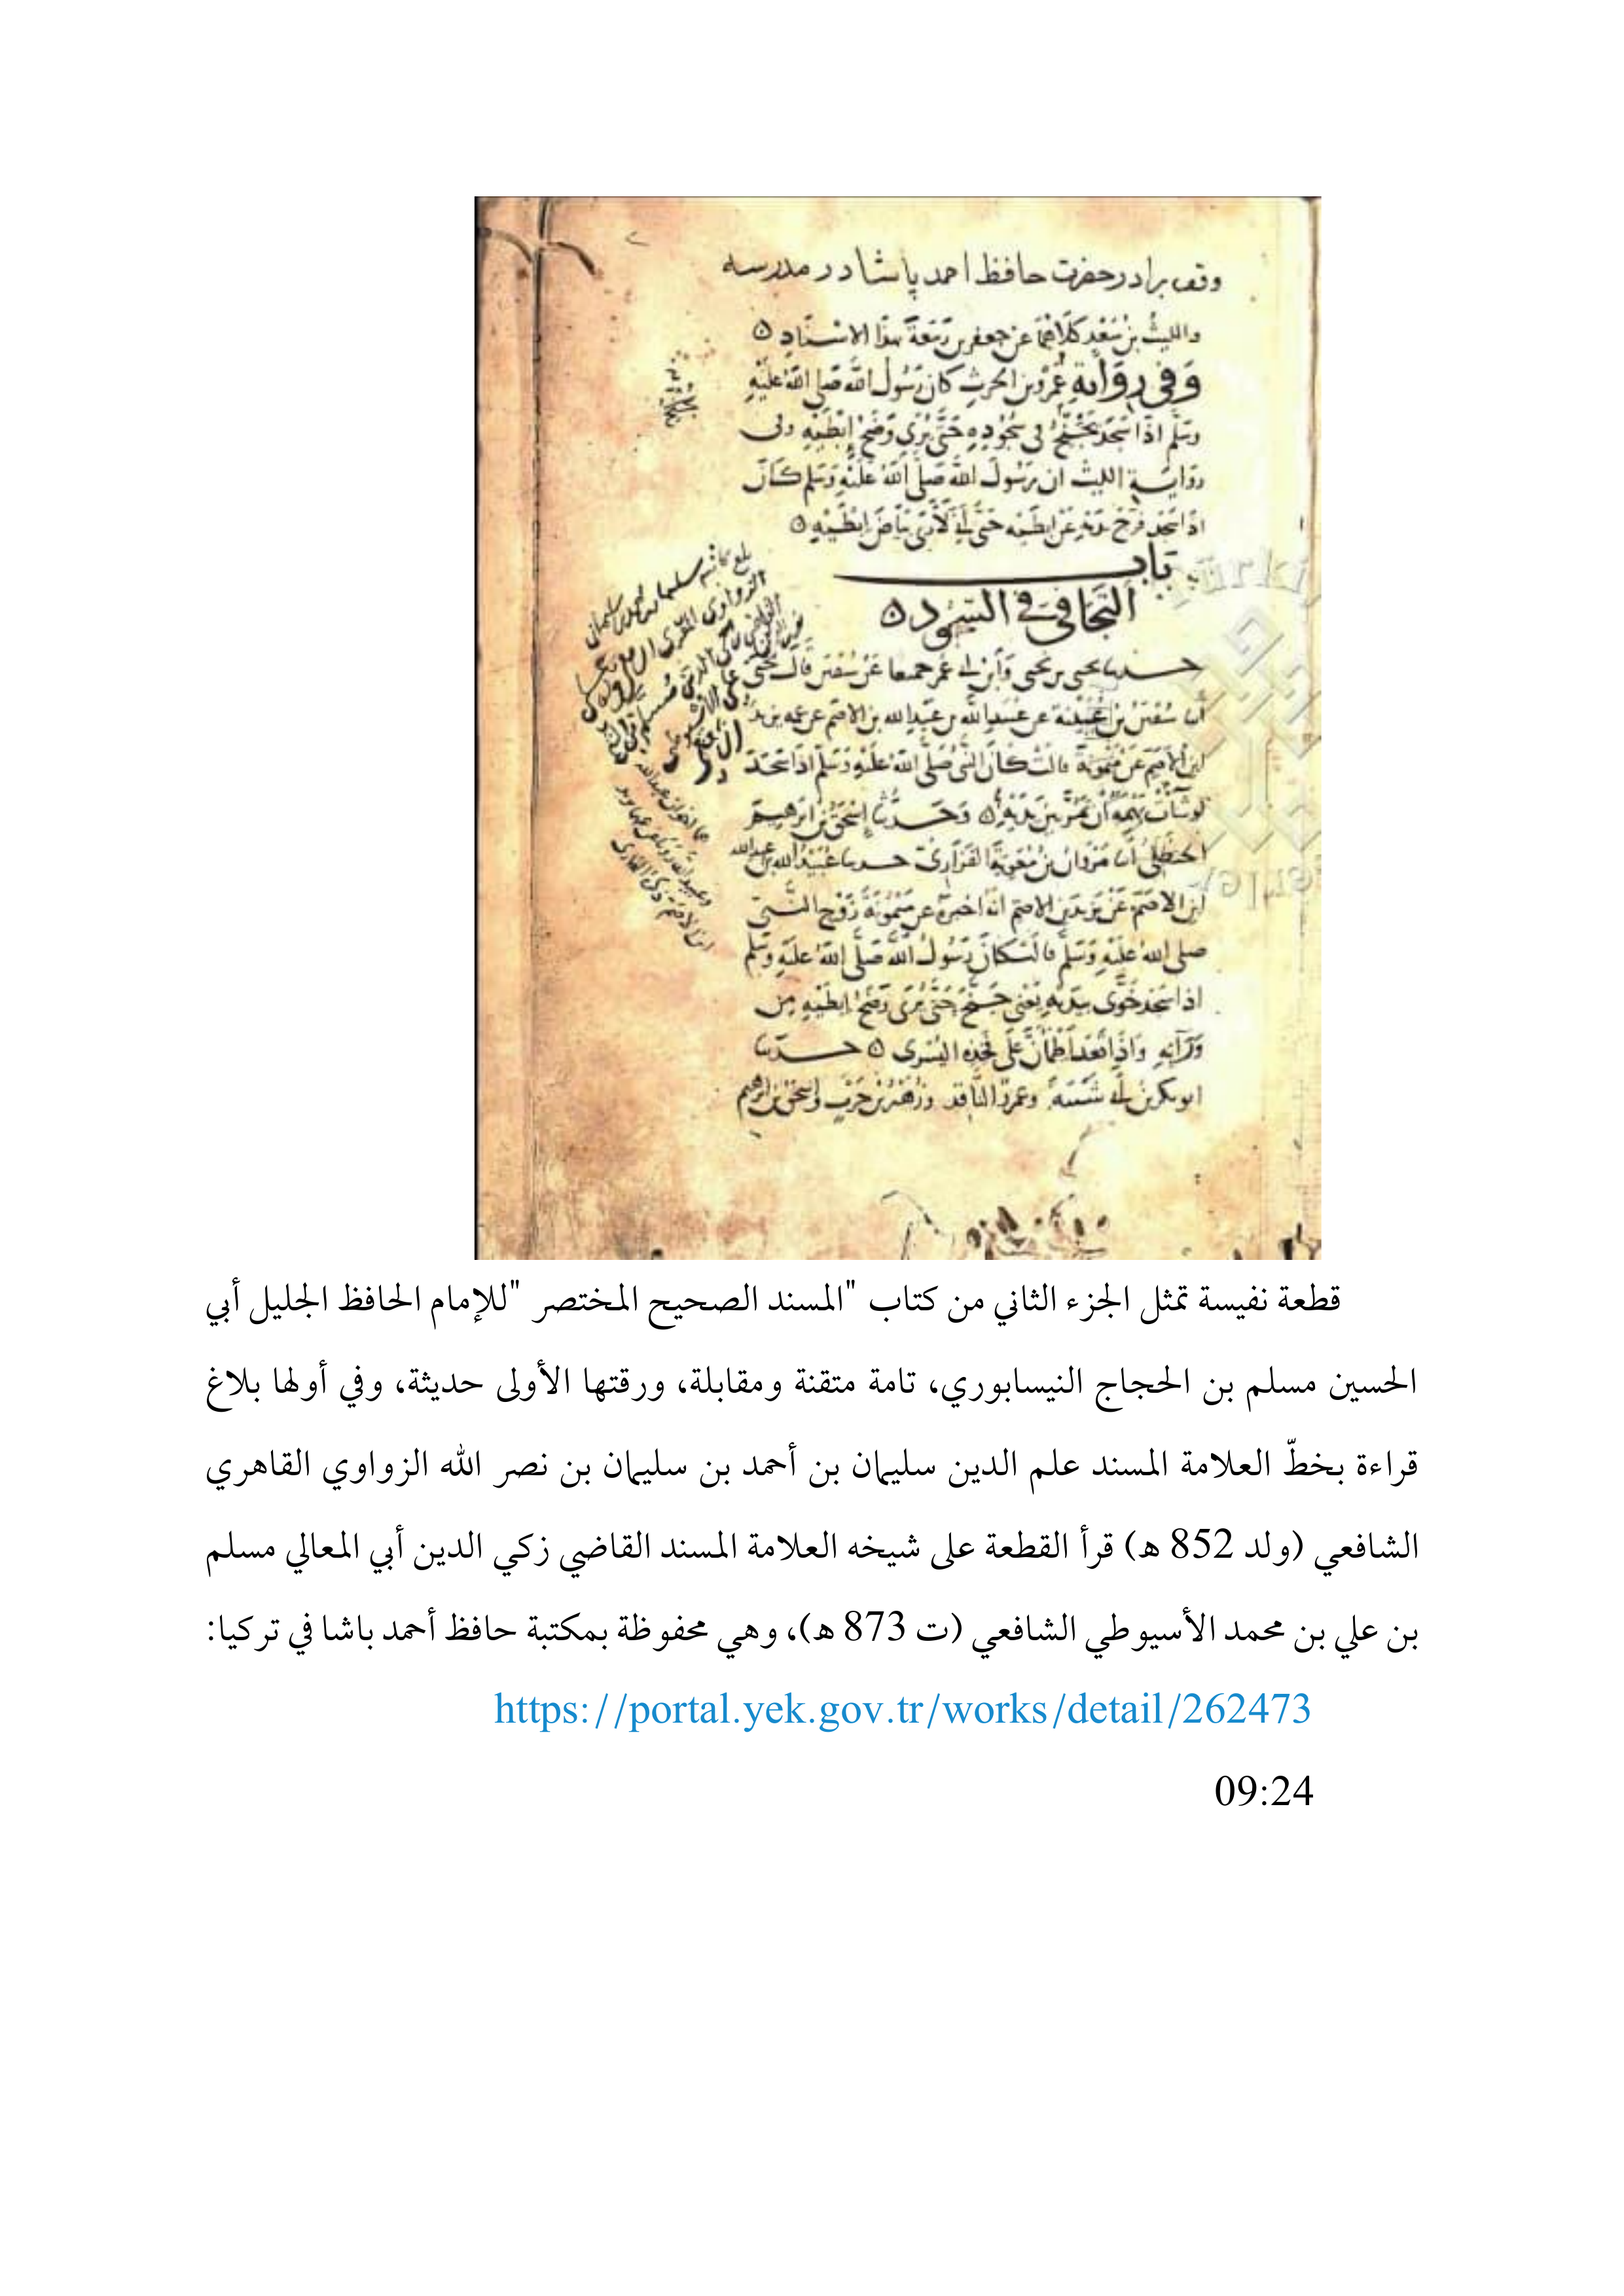 وقف برادر حضرت حافظ احمد پاشا در مدرسه
والليث بن سعد كلاهما عن جعفر بن ربيعة بهذا الاسناد
وفي رواية عمرو بن الحرث كان رسول الله صلى الله عليه
وسلم اذا سجد يجنح في سجوده حتى يرى وضح إبطيه وفى
رواية الليث ان رسول الله صلى الله عليه وسلم كان
اذا سجد فرج يديه عن ابطيه حتى إني لأرى بياض ابطيه
باب
التجافي في السجود
حدثنا يحيى بن يحيى وابن أبي عمر جميعا عن سفين قال يحيى
أنا سفين بن عيينة عن عبيد الله بن عبد الله بن الاصم عن عمه يزيد
ابن الأصم عن ميمونة قالت كان النبي صلى الله عليه وسلم اذا سجد
لو شاءت بهمة أن تمر بين يديه وحدثنا إسحق بن ابرهيم
الحنظلي أنا مروان بن معوية الفزاري حدثنا عبيد الله بن عبد الله
ابن الاصم عن يزيد بن الاصم انه اخبره عن ميمونة زوج النبي
صلى الله عليه وسلم قالت كان رسول الله صلى الله عليه وسلم
اذا سجد خوى بيديه يعني جنح حتى يرى وضح ابطيه من
ورائه واذا قعد اطمأن على فخذه اليسرى حدثنا
ابو بكر بن أبي شيبة وعمرو الناقد وزهير بن حرب واسحق بن ابرهيم
قطعة نفيسة تمثل الجزء الثاني من كتاب "المسند الصحيح المختصر "للإمام الحافظ الجليل أبي
الحسين مسلم بن الحجاج النيسابوري، تامة متقنة ومقابلة، ورقتها الأولى حديثة، وفي أولها بلاغ
قراءة بخطّ العلامة المسند علم الدين سليمان بن أحمد بن سليمان بن نصر الله الزواوي القاهري
الشافعي (ولد 852 هـ) قرأ القطعة على شيخه العلامة المسند القاضي زكي الدين أبي المعالي مسلم
بن علي بن محمد الأسيوطي الشافعي (ت 873 هـ)، وهي محفوظة بمكتبة حافظ أحمد باشا في تركيا:
https://portal.yek.gov.tr/works/detail/262473
09:24